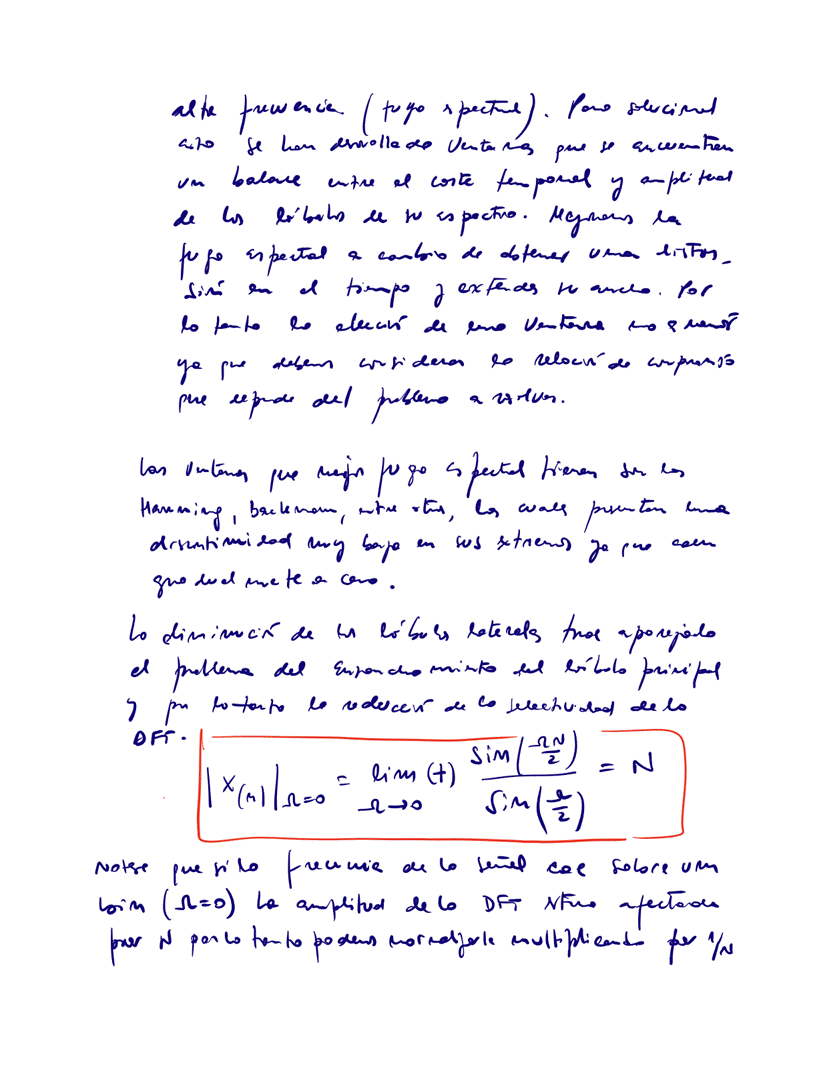 alta frecuencia (fuga espectral). Para solucionar
esto se han desarrollado ventanas que se encuentran
un balance entre el corte temporal y amplitud
de los lóbulos de su espectro. Mejoramos la
fuga espectral a cambio de obtener una distor-
sión en el tiempo y extender su ancho. Por
lo tanto la elección de una ventana no es menor
ya que debemos considerar la relación de compromiso
que depende del problema a resolver.
Las ventanas que mejor fuga espectral tienen son las
Hamming, Backmann, entre otras, las cuales presentan una
discontinuidad muy baja en sus extremos ya que caen
gradualmente a cero.
La disminución de los lóbulos laterales trae aparejado
el problema del ensanchamiento del lóbulo principal
y por lo tanto la reducción de la selectividad de la
DFT.
|X(n)|Ω=0 = lim Ω→0 (+) sin(ΩN/2) / sin(Ω/2) = N
Notese que si la frecuencia de la señal cae sobre un
bin (Ω=0) la amplitud de la DFT afectada
por N por lo tanto podemos normalizarla multiplicando por 1/N